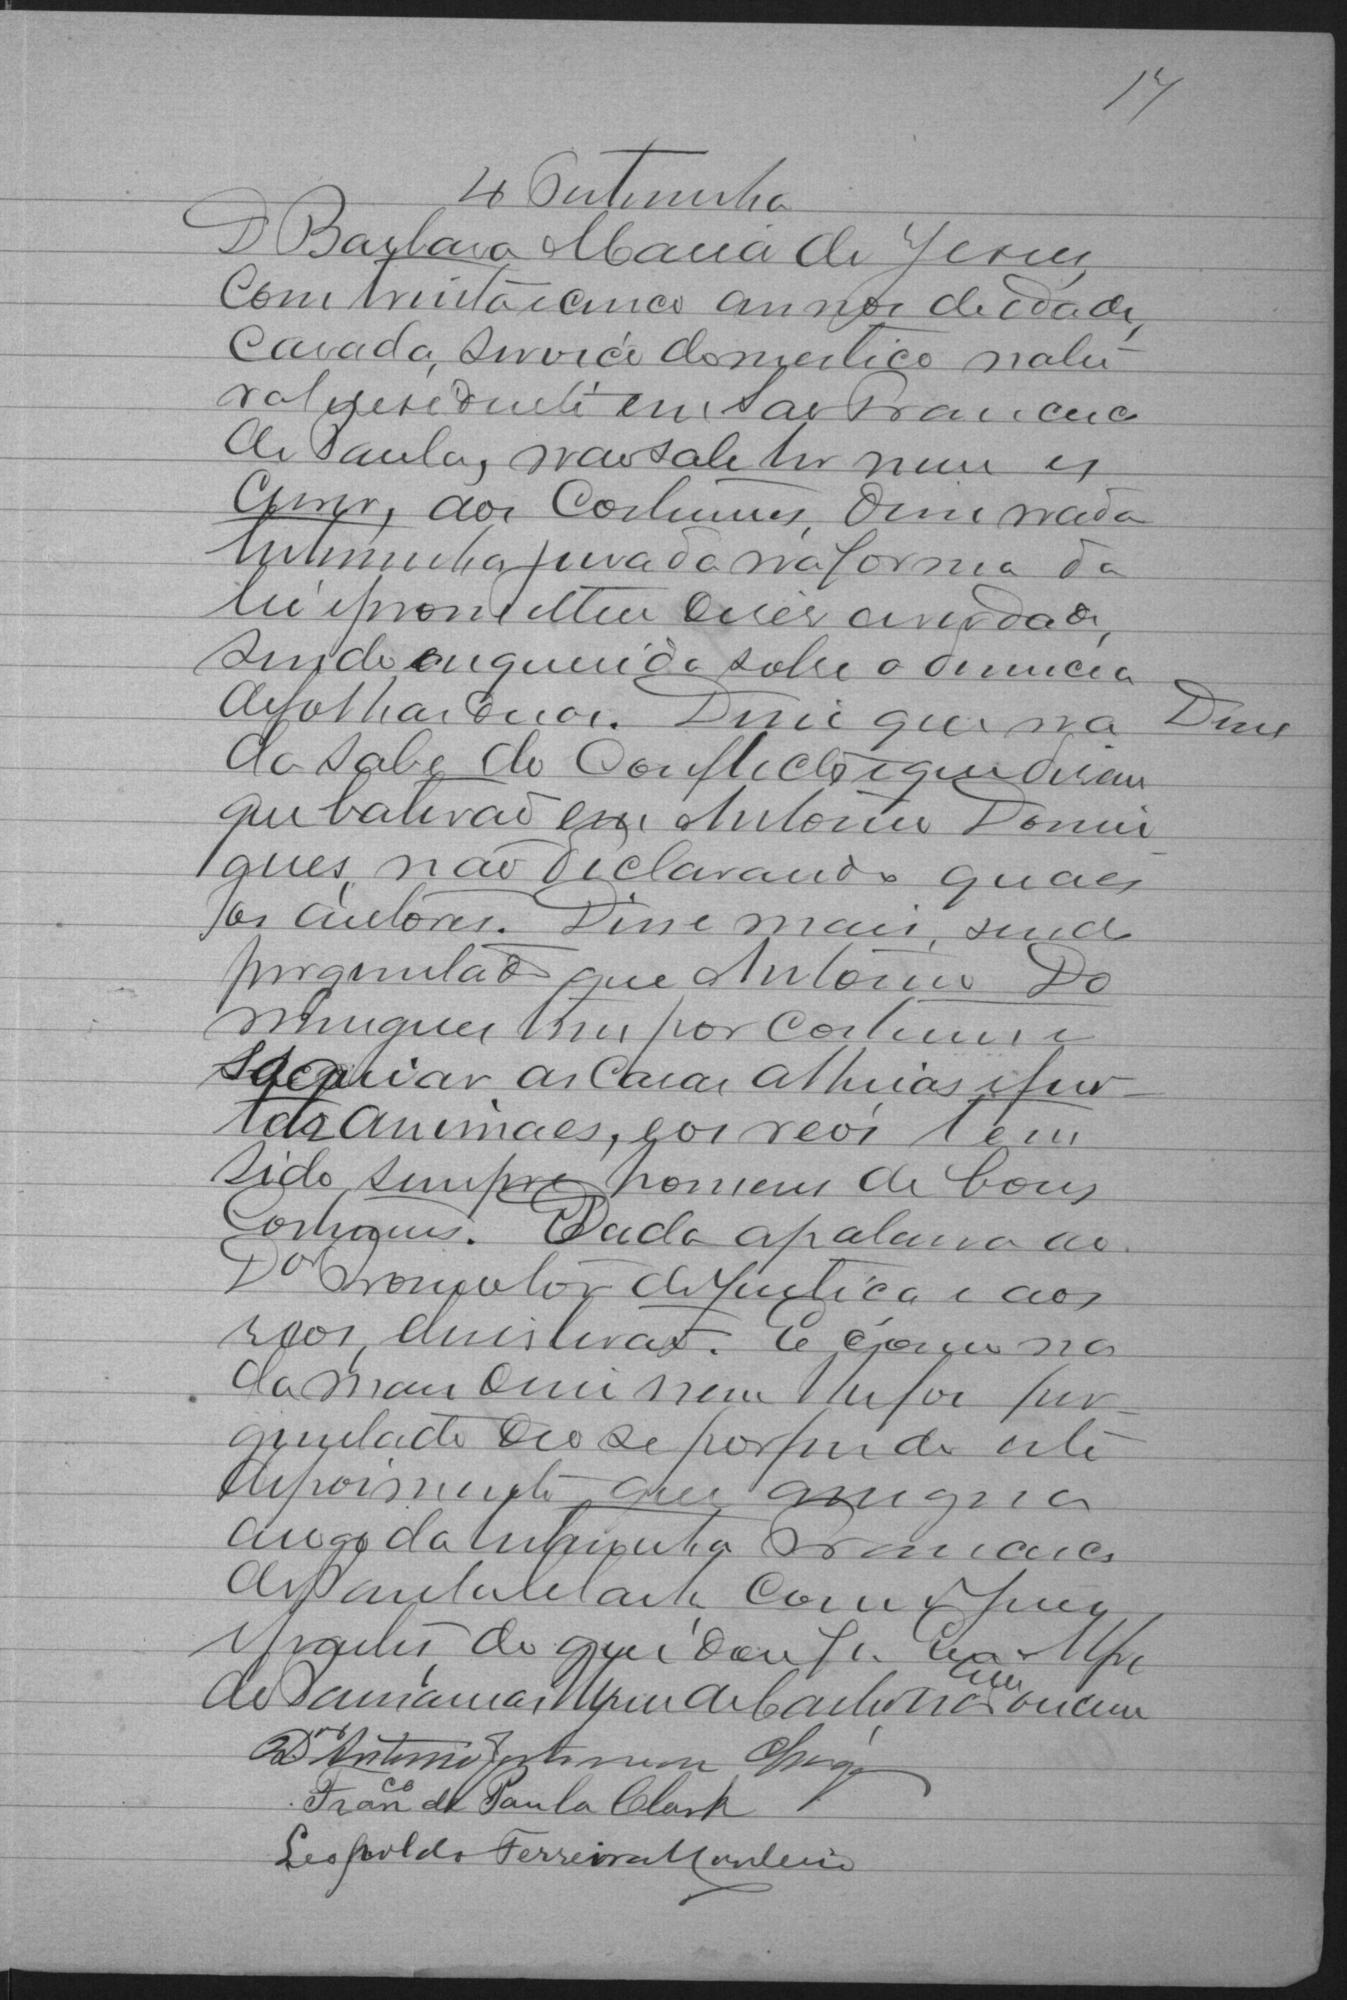 17
4ª Testemunha
D Barbara Maria de Jesus,
com trinta e cinco annos de edade,
casada, servicio domestico natu
ral e residente em Sao Francisco
de Paula, nao sabe ler nem es
crever, aos costumes, disse nada
testemunha jurada na forma da
lei e prometteu diser a verdade,
sendo enquerida sobre a denuncia
de folhas duas. Disse que na Disse
da sabe do conflicto e que disem
que baterão em Antonio Domin
gues, não declarando quaes
os autores. Disse mais, sendo
preguntado que Antonio Do
mingues tem por costume
saquiar as casas alheias e fur-
tar animaes, e os reos tem
sido sempre homens de bons
costumes. Dada a palavra ao
Dor Promotor de Justica e aos
reos, desistirão. E como na
da mais disse nem lhe foi per-
guntado deo se por findo este
depoimento que assigna
a rogo da testemunha Francisco
de Paula Clark com o Juis
e partes do que dou fe. Eu Alfre
do
escrivam
Dr Antonio
Franco de Paula Clark
Leopoldo Ferreira Monteiro